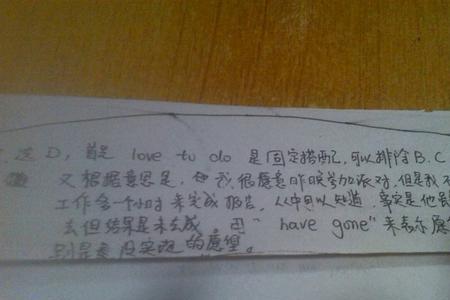 选D,首先 love to do 是固定搭配,可以排除B.C
又根据意思是,我很愿意昨晚参加派对,但是我不
工作多一个小时来完成报告,从中可以知道,事实是他
去但结果是未去成,用"have gone"来表示愿
没实现的愿望。